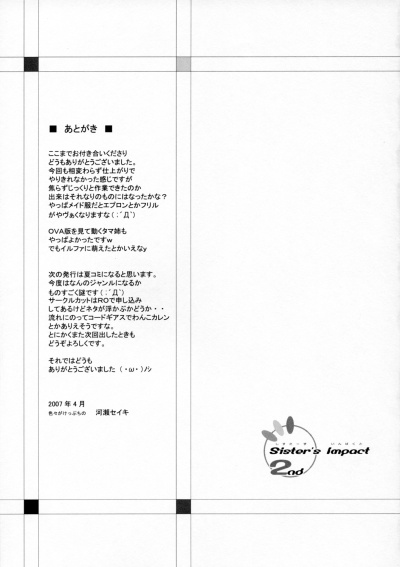 ■ あとがき ■
ここまでお付き合いくださり
どうもありがとうございました。
今回も相変わらず仕上がりで
やりきれなかった感じですが
焦らずじっくりと作業できたのか
出来はそれなりのものにはなったかな？
やっぱメイド服だとエプロンとかフリル
がやヴぁくなりますな（；´Д｀）
OVA版を見て動くタマ姉も
やっぱよかったですｗ
でもイルファに萌えたとかいえなｙ
次の発行は夏コミになると思います。
今度はなんのジャンルになるか
ものすごく謎です（；´Д｀）
サークルカットはROで申し込み
してあるけどネタが浮かぶかどうか・・
流れにのってコードギアスでわんこカレン
とかありえそうですな。
とにかくまた次回出したときも
どうぞよろしくです。
それではどうも
ありがとうございました（・ω・）ノシ
2007 年 4 月
色々がけっぷちの 河瀬セイキ
Sister's Impact
2nd